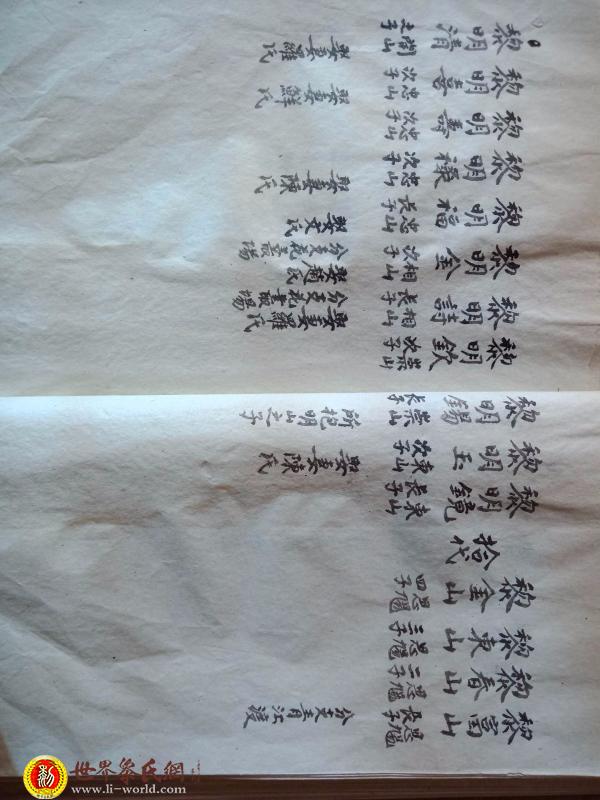 黎富山 思長子 分支青江渡
黎春山 思二子
黎東山 思三子
黎金山 思四子
拾代
黎明鏡 東山長子
黎明玉 東山次子 娶妻陳氏
黎明錫 崇山長子 所抱明山之子
黎明欽 崇山次子
黎明詩 相山長子 分支花場 娶妻羅氏
黎明金 相山次子 分支花場 娶趙氏
黎明福 忠山長子 娶文氏
黎明祿 忠山次子 娶妻陳氏
黎明壽 忠山次子
黎明喜 忠山次子 娶妻鮮氏
黎明清 開山之子 娶妻羅氏
世界黎氏網
www.li-world.com